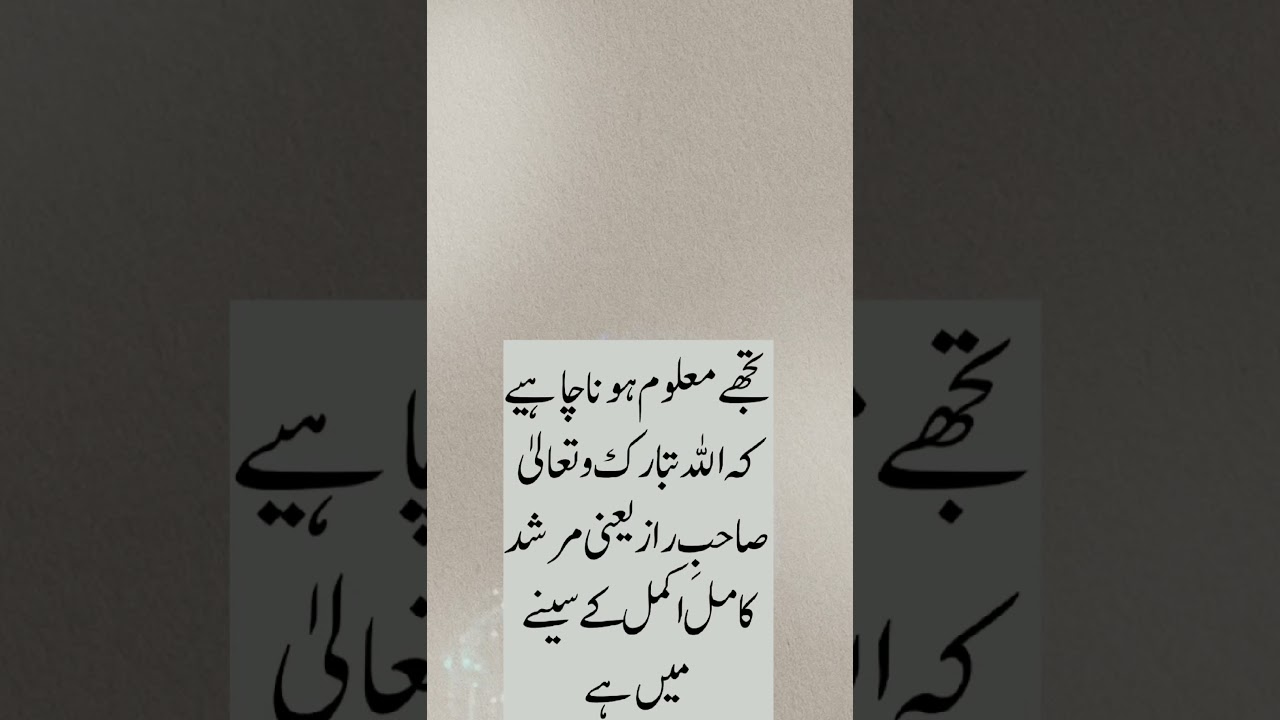 تجھے معلوم ہونا چاہیے
کہ اللہ تبارک و تعالیٰ
صاحبِ راز یعنی مرشد
کامل اکمل کے سینے
میں ہے